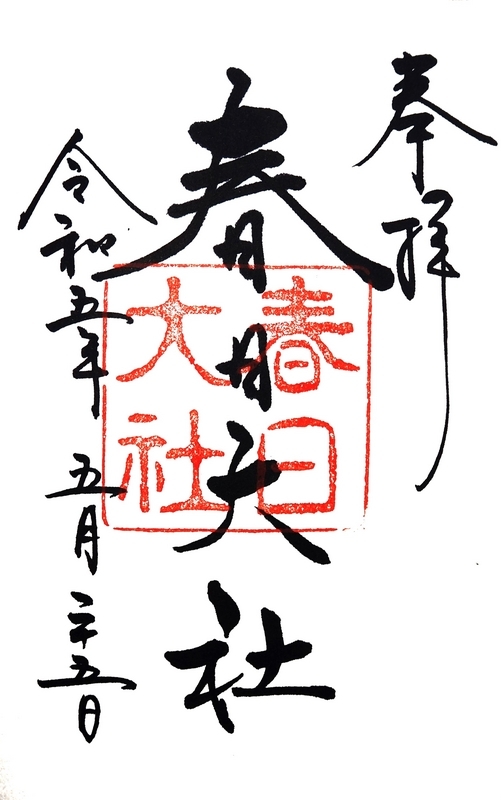 奉拝
春日大社
春日
大社
令和五年 五月二十五日